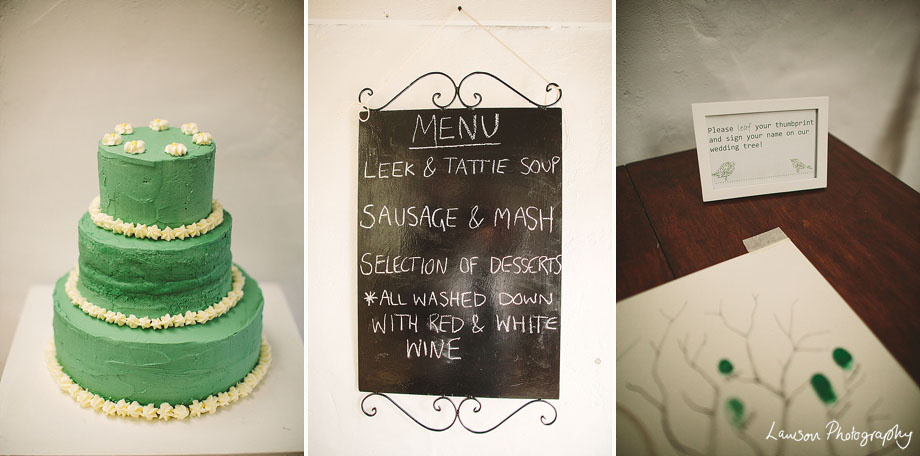 MENU
LEEK & TATTIE SOUP
SAUSAGE & MASH
SELECTION OF DESSERTS
*ALL WASHED DOWN
WITH RED & WHITE
WINE
Please leaf your thumbprint
and sign your name on our
wedding tree!
Lawson Photography